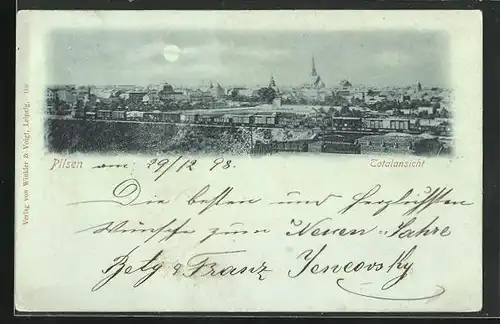 Pilsen am 29/12 98.
Totalansicht
Die besten und herzlichsten
Wünsche zum Neuen-Jahre
Franz Jencovsky
Verlag von Winkler & Voigt, Leipzig.